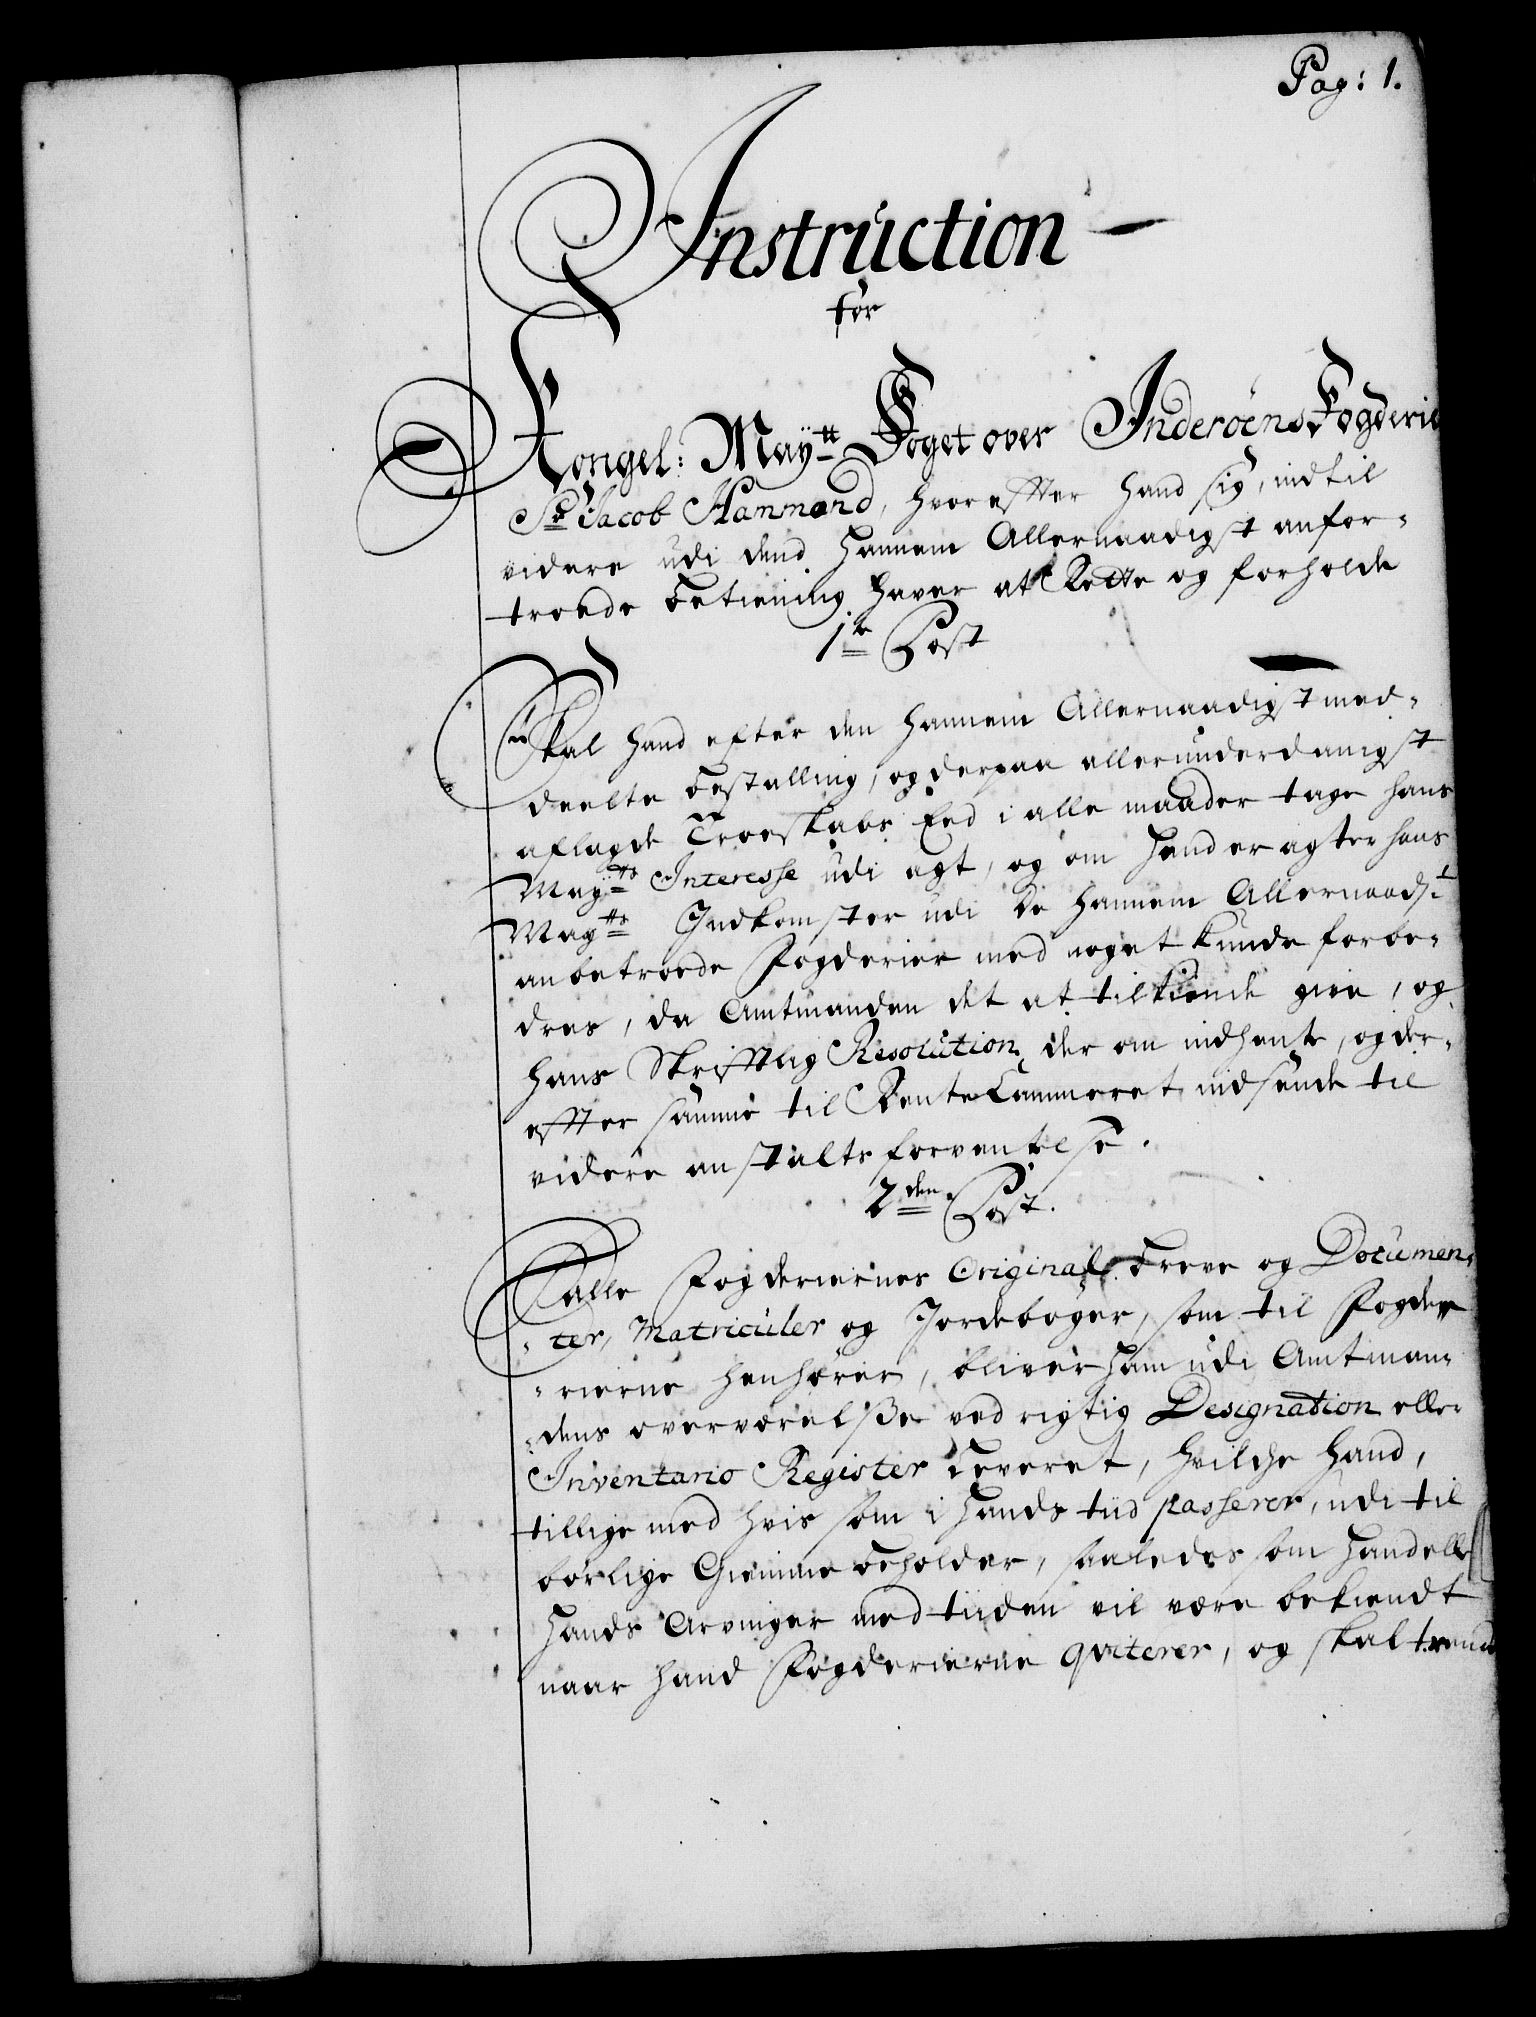 Pag: 1.
Instruction
for
Kongel: Mayᵗᵗ Foget over Inderöens Fogderie
Sr Jacob Hammond, hvorefter hand sig, indtil
videre udi dend hannem Allernaadigst anfor-
troede betiening haver at Rette og forholde
1te Post
Skal hand efter den hannem Allernaadigst med-
deelte bestalling, og derpaa allerunderdanigst
aflagde Troeskabs Eed i alle maader tage hans
Mayᵗᵗˢ Interesse udi agt, og om hand eragter hans
Mayᵗᵗˢ Indkomster udi de hannem Allernaadst
anbetroede Fogderier med noget kunde forbe-
dres, da Amtmanden det at tilkiende give, og
hans Skrifftlig Resolution der om indhente, og der-
effter samme til Rente Cammeret indsende til
videre anstalts forventelse.
2den Post.
Alle Fogderiernes Original breve og Documen-
ter, Matriculer og Jordebøger, som til Fogde-
rierne henhører, bliver ham udi Amtman-
dens overværelße ved rigtig Designation eller
Inventario Register leveret, hvilche hand,
tillige med hvis som i hands tiid passerer, udi til
børlige Giemme beholder, saaledes som hand eller
hands Arvinger med tiiden vil være bekiendt
naar hand Fogderierne qviterer, og skal